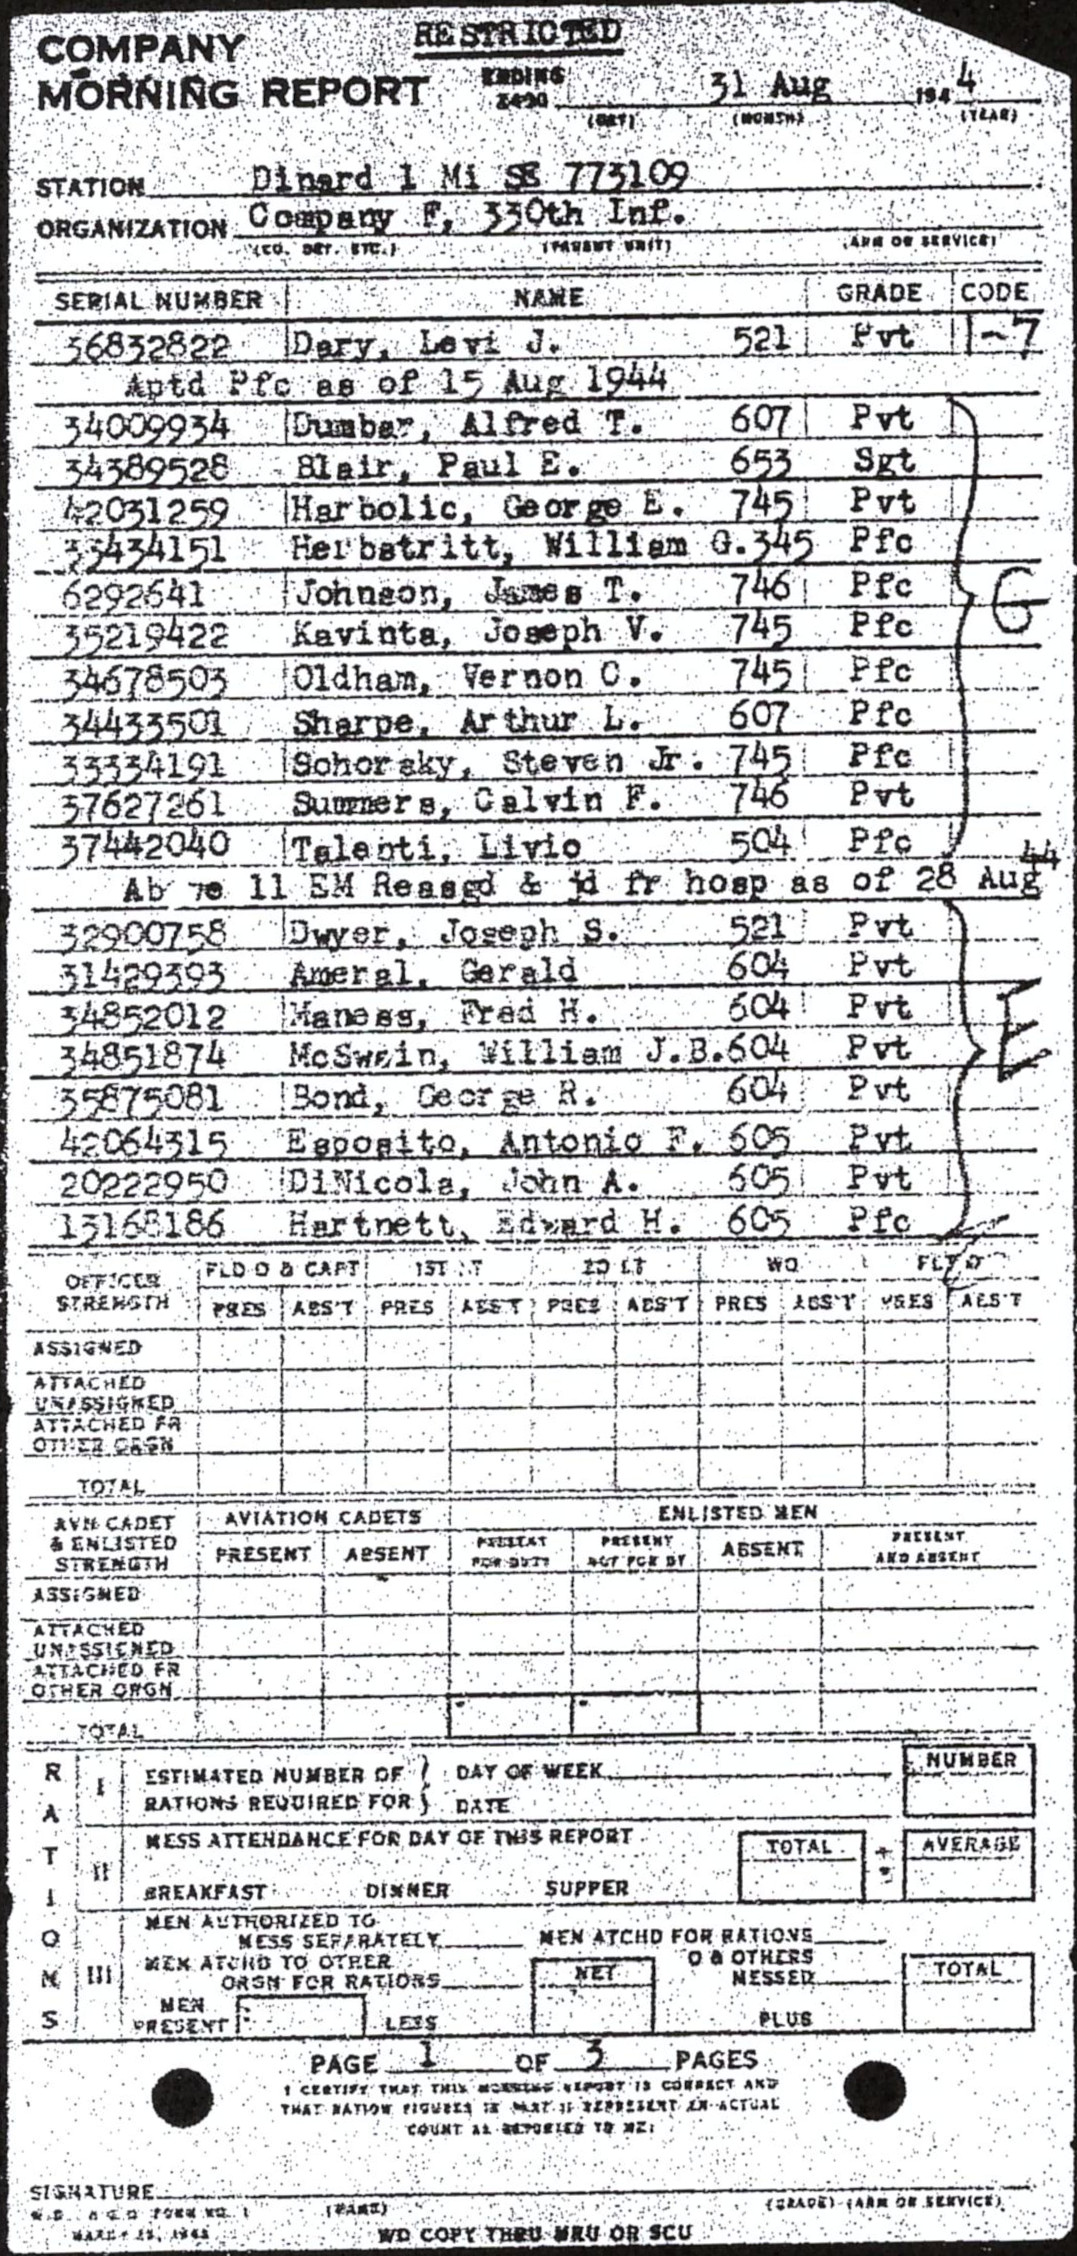 RESTRICTED
COMPANY
MORNING REPORT ENDING 2400 31 Aug 1944
(DAY) (MONTH) (YEAR)
STATION Dinard 1 Mi SE 773109
ORGANIZATION Company F, 330th Inf.
(CO. DET. ETC.) (PARENT UNIT) (ARM OR SERVICE)
SERIAL NUMBER NAME GRADE CODE
36832822 Dary, Levi J. 521 Pvt 1-7
Aptd Pfc as of 15 Aug 1944
34009934 Dumbar, Alfred T. 607 Pvt
34389528 Blair, Paul E. 653 Sgt
42031259 Harbolic, George E. 745 Pvt
33434151 Herbstritt, William G. 345 Pfc
6292641 Johnson, James T. 746 Pfc G
35219422 Kavinta, Joseph V. 745 Pfc
34678503 Oldham, Vernon C. 745 Pfc
34433501 Sharpe, Arthur L. 607 Pfc
33334191 Schorsky, Steven Jr. 745 Pfc
37627261 Summers, Calvin F. 746 Pvt
37442040 Talenti, Livio 504 Pfc
Ab ve 11 EM Reasgd & jd fr hosp as of 28 Aug 44
32900758 Dwyer, Joseph S. 521 Pvt
31429393 Ameral, Gerald 604 Pvt
34852012 Maness, Fred H. 604 Pvt E
34851874 McSwain, William J.B. 604 Pvt
35875081 Bond, George R. 604 Pvt
42064315 Esposito, Antonio F. 605 Pvt
20222950 DiNicola, John A. 605 Pvt
13168186 Hartnett, Edward H. 605 Pfc
OFFICER STRENGTH FLD O & CAPT 1ST LT 2D LT WO FLT O
PRES ABS'T PRES ABS'T PRES ABS'T PRES ABS'T PRES ABS'T
ASSIGNED
ATTACHED
UNASSIGNED
ATTACHED FR
OTHER ORGN
TOTAL
AVN CADET & ENLISTED STRENGTH AVIATION CADETS ENLISTED MEN
PRESENT ABSENT PRESENT FOR DUTY PRESENT NOT FOR DY ABSENT PRESENT AND ABSENT
ASSIGNED
ATTACHED
UNASSIGNED
ATTACHED FR
OTHER ORGN
TOTAL
RATIONS
I ESTIMATED NUMBER OF DAY OF WEEK NUMBER
RATIONS REQUIRED FOR DATE
II MESS ATTENDANCE FOR DAY OF THIS REPORT TOTAL AVERAGE
BREAKFAST DINNER SUPPER
III MEN AUTHORIZED TO
MESS SEPARATELY MEN ATCHD FOR RATIONS
MEN ATCHD TO OTHER O & OTHERS
ORGN FOR RATIONS NET MESSED TOTAL
MEN
PRESENT LESS PLUS
PAGE 1 OF 3 PAGES
I CERTIFY THAT THIS MORNING REPORT IS CORRECT AND
THAT RATION FIGURES IN PART II REPRESENT AN ACTUAL
COUNT AS REPORTED TO ME:
SIGNATURE
(NAME) (GRADE) (ARM OR SERVICE)
W.D. A.G.O. FORM NO. 1
WD COPY THRU MRU OR SCU